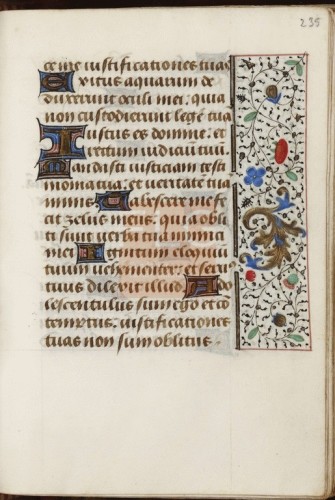 235
ce me iustificationes tuas
Exitus aquarum de
duxerunt oculi mei: quia
non custodierunt legē tuā
Iustus es domine: et
rectum iudicium tuū
Mandasti iusticiam testi
monia tua: et veritatē tuā
nimis Tabescere me fe
cit zelus meus: quia obli
ti sunt verba tua inimici
mei Ignitum eloqui
tuum vehementer: et seru
tuus dilexit illud Ado
lescentulus sum ego et cō
temptus: iustificationes
tuas non sum oblitus